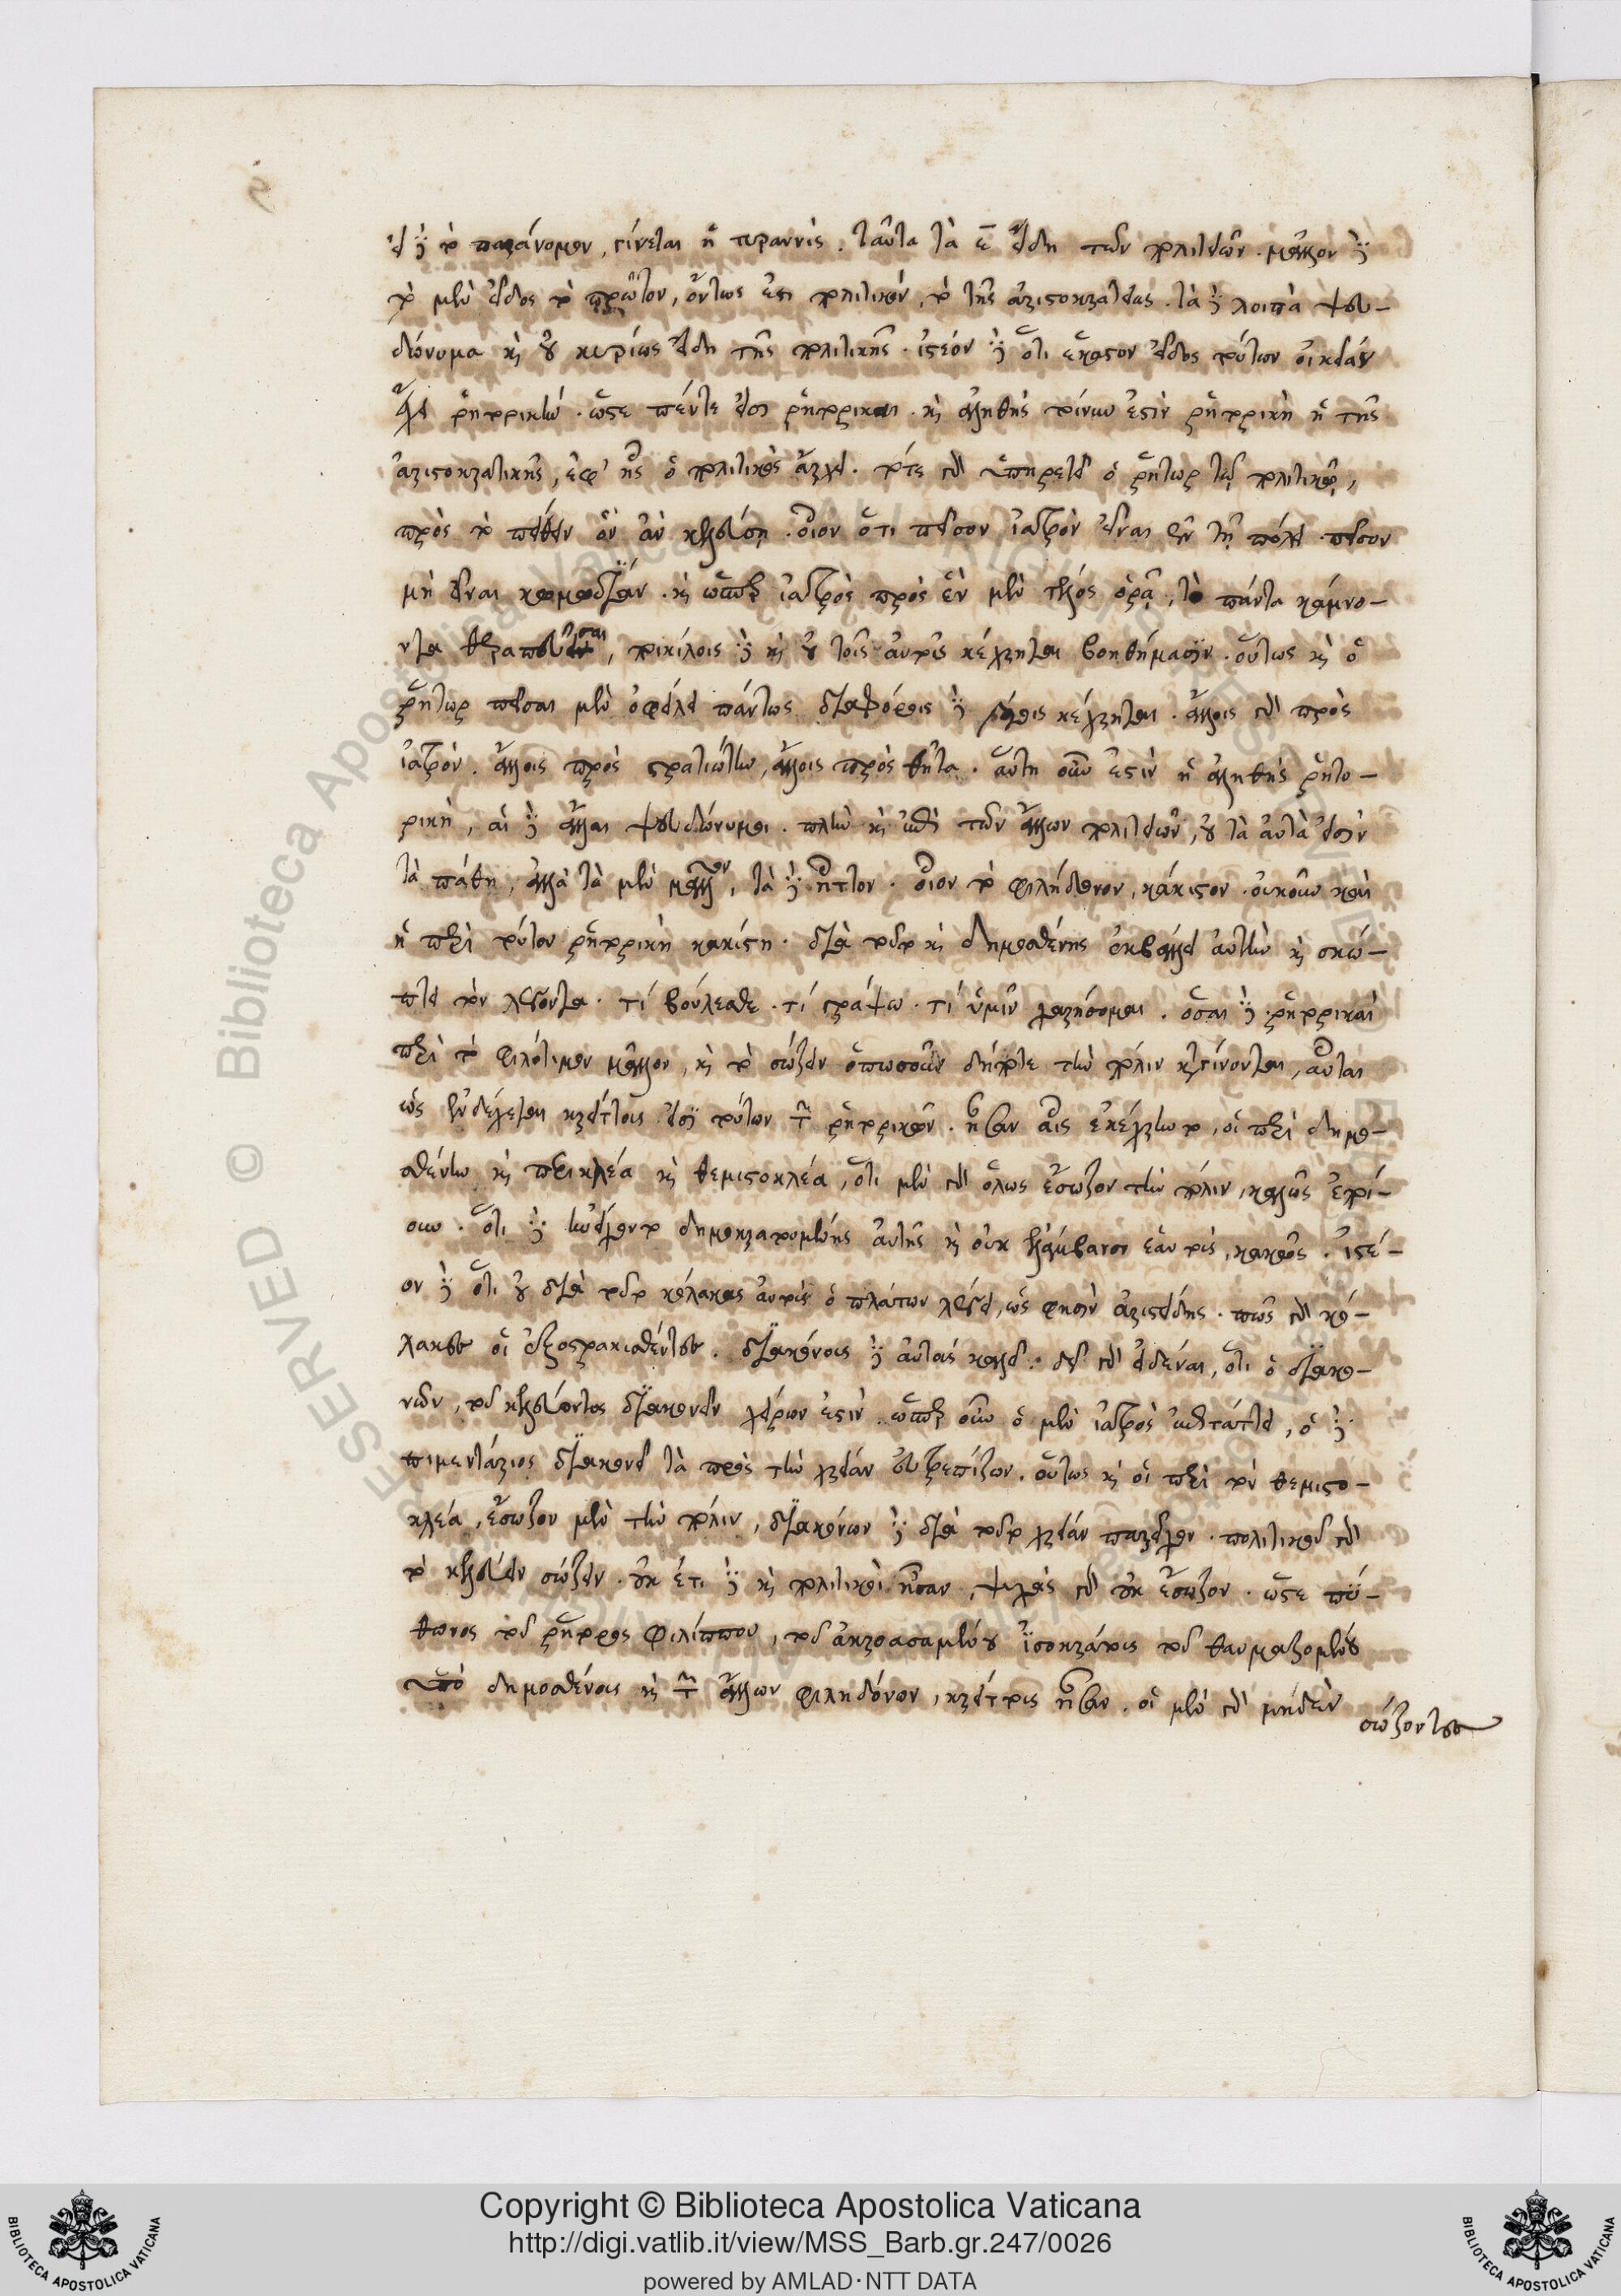 εἰ δὲ τὸ παράνομον, γίνεται ἡ τυραννίς. ταῦτα τὰ ε̄ εἴδη τῶν πολιτειῶν. μᾶλλον δὲ
τὸ μὲν εἶδος τὸ πρῶτον, ὄντως ἐστὶ πολιτικόν, τὸ τῆς ἀριστοκρατείας. τὰ δὲ λοιπὰ ψευ-
δώνυμα καὶ οὐ κυρίως εἴδη τῆς πολιτικῆς. ἰστέον δὲ ὅτι ἕκαστον εἶδος τούτων οἰκείαν
ἔχει ῥητορικήν. ὥστε πέντε εἰσὶ ῥητορικαί. καὶ ἀληθὴς τοίνυν ἐστὶν ῥητορικὴ ἡ τῆς
ἀριστοκρατικῆς, ἐφ' ἧς ὁ πολιτικὸς ἄρχει. τότε γὰρ ὑπηρετεῖ ὁ ῥήτωρ τῷ πολιτικῷ,
πρὸς τὸ πείθειν ὃν ἂν κελεύσῃ. οἷον ὅτι πεῖσον ἰατρὸν εἶναι ἐν τῇ πόλει. πεῖσον
μὴ εἶναι κωμῳδίαν. καὶ ὥσπερ ἰατρὸς πρὸς ἓν μὲν τέλος ὁρᾷ, τὸ πάντα κάμνο-
ντα θεραπεῦσαι, ποικίλοις δὲ καὶ οὐ τοῖς αὐτοῖς κέχρηται βοηθήμασιν. οὕτως καὶ ὁ
ῥήτωρ πεῖσαι μὲν ὀφείλει πάντως διαφόροις δὲ λόγοις κέχρηται. ἄλλοις γὰρ πρὸς
ἰατρόν. ἄλλοις πρὸς στρατιώτην, ἄλλοις πρὸς θῆτα. αὕτη οὖν ἐστὶν ἡ ἀληθὴς ῥητο-
ρική, αἱ δὲ ἄλλαι ψευδώνυμοι. πλὴν καὶ ἐπὶ τῶν ἄλλων πολιτειῶν, οὐ τὰ αὐτὰ εἰσὶν
τὰ πάθη, ἀλλὰ τὰ μὲν μᾶλλον, τὰ δὲ ἧττον. οἷον τὸ φιλήδονον, κάκιστον. οὐκοῦν καὶ
ἡ περὶ τούτου ῥητορικὴ κακίστη. διὰ τοῦτο καὶ Δημοσθένης ἐκβάλλει αὐτὴν καὶ σκώ-
πτει τὸν λέγοντα. τί βούλεσθε. τί γράψω. τί ὑμῖν χαρίσομαι. ὅσαι δὲ ῥητορικαὶ
περὶ τὸ φιλότιμον μᾶλλον, καὶ τὸ σώζειν ὁπωσοῦν δήποτε τὴν πόλιν καταγίνονται, αὗται
ὡς ἐνδέχεται κρείττους εἰσὶ τούτων τῶν ῥητορικῶν. ἦσαν αἷς ἐκέχρηντο, οἱ περὶ Δημο-
σθένην καὶ Περικλέα καὶ Θεμιστοκλέα, ὅτι μὲν γὰρ ὅλως ἔσωζον τὴν πόλιν, καλῶς ἐποί-
ουν. ὅτι δὲ ἠνείχοντο δημοκρατουμένης αὐτῆς καὶ οὐκ ἐλάμβανον ἑαυτοῖς, κακῶς. ἰστέ-
ον δὲ ὅτι οὐ διὰ τοῦτο κόλακας αὐτοὺς ὁ Πλάτων λέγει, ὥς φησιν Ἀριστείδης. πῶς γὰρ κό-
λακες οἱ ἐξοστρακισθέντες. διακόνους δὲ αὐτοὺς καλεῖ. δεῖ γὰρ εἰδέναι, ὅτι ὁ διακο-
νῶν, τοῦ κελεύοντος διακονεῖν χείρων ἐστίν. ὥσπερ οὖν ὁ μὲν ἰατρὸς ἐπιτάττει, ὁ δὲ
πιμεντάριος διακονεῖ τὰ πρὸς τὴν χρείαν εὐτρεπίζων. οὕτως καὶ οἱ περὶ τὸν Θεμιστο-
κλέα, ἔσωζον μὲν τὴν πόλιν, διακόνων δὲ διὰ τοῦτο χρείαν παρεῖχον. πολιτικοῦ γὰρ
τὸ κελεύειν σώζειν. οὐκ ἔτι δὲ καὶ πολιτικοὶ ἦσαν, ψυχὰς γὰρ οὐκ ἔσωζον. ὥστε Πύ-
θωνος τοῦ ῥήτορος Φιλίππου, τοῦ ἀκροασαμένου Ἰσοκράτους τοῦ θαυμαζομένου
ὑπὸ Δημοσθένους καὶ τῶν ἄλλων φιληδόνων, κρείττους ἦσαν. οἱ μὲν γὰρ μηδὲν
σώζοντες
Copyright © Biblioteca Apostolica Vaticana
http://digi.vatlib.it/view/MSS_Barb.gr.247/0026
powered by AMLAD·NTT DATA